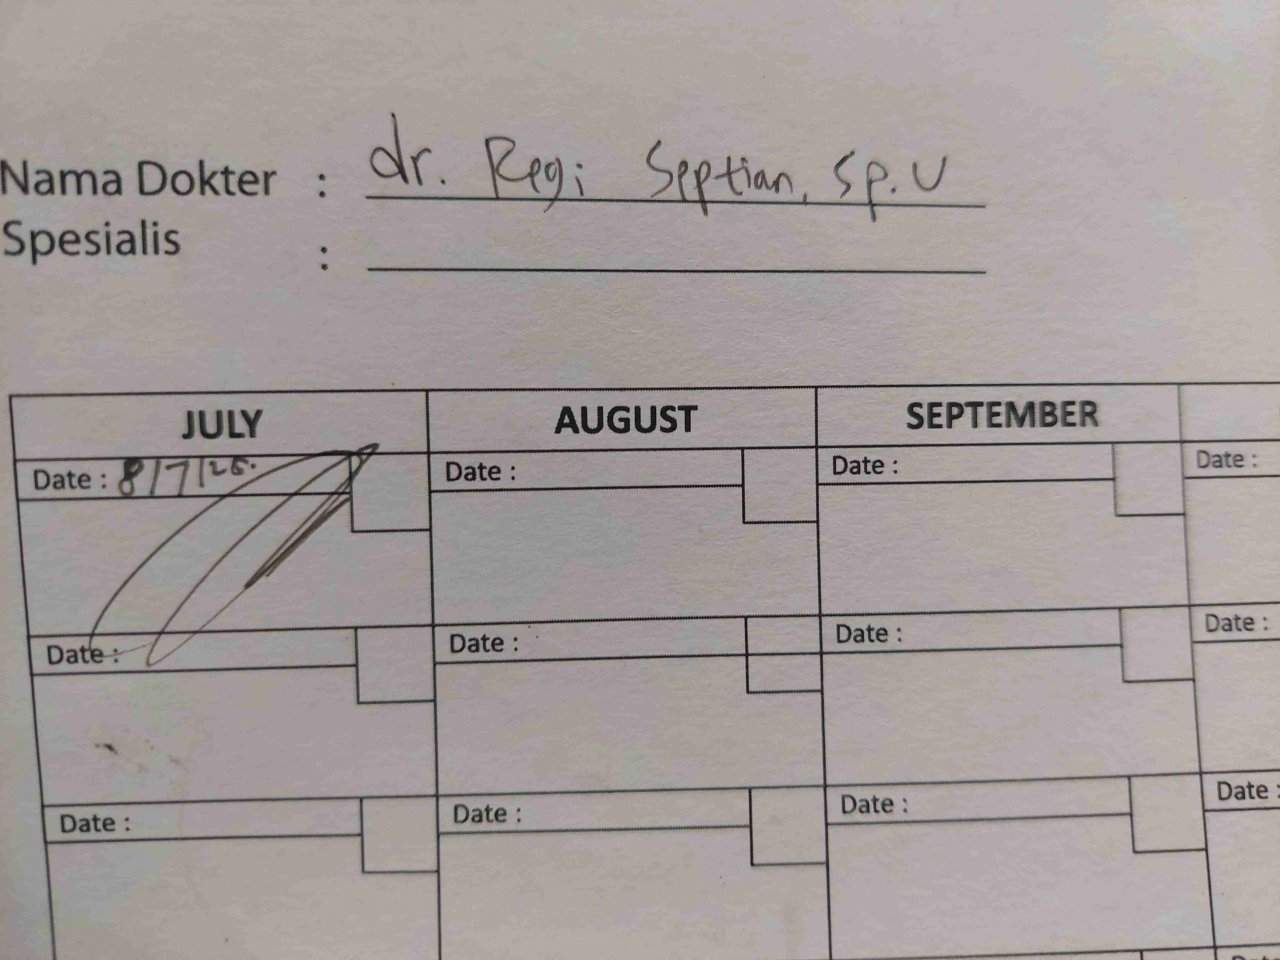 Nama Dokter : dr. Regi Septian, Sp.U
Spesialis :
JULY AUGUST SEPTEMBER
Date : 8/7/25. Date : Date : Date :
Date : Date : Date : Date :
Date : Date : Date : Date :